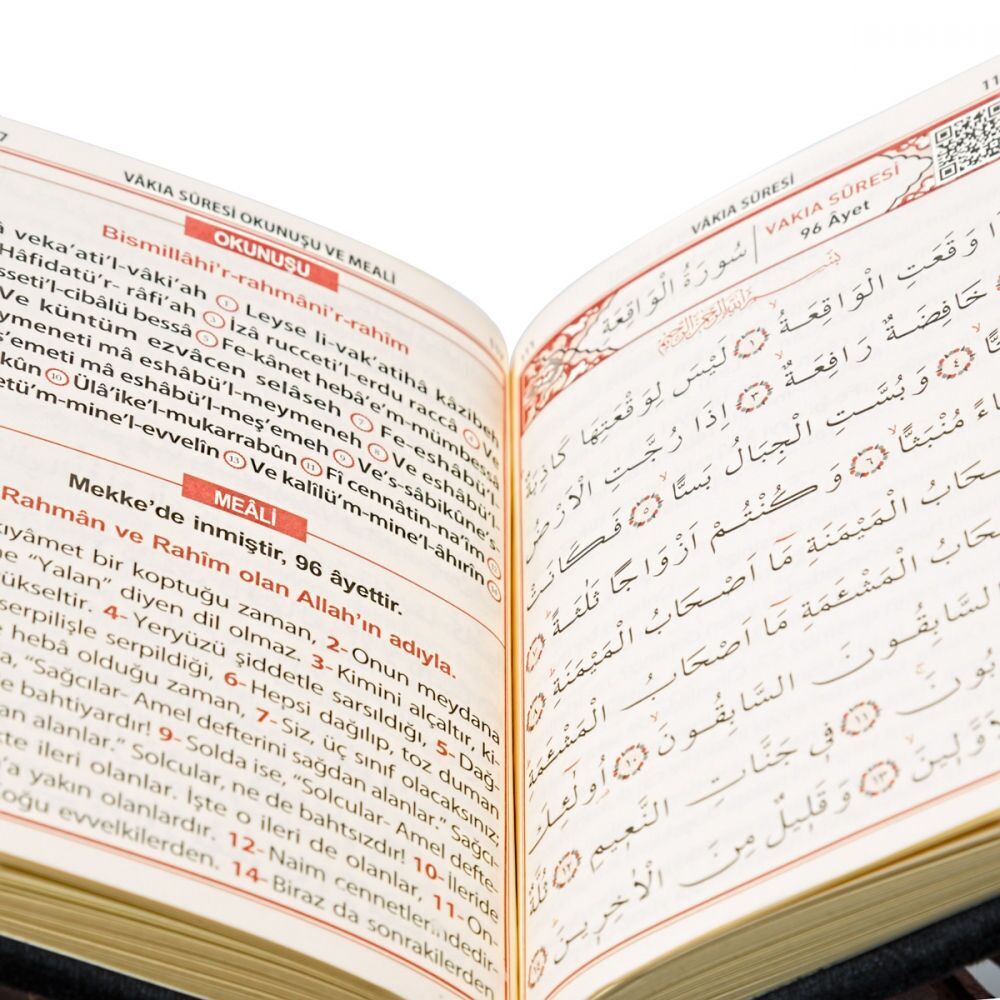 7
VÂKIA SÛRESİ OKUNUŞU VE MEALİ
OKUNUŞU
Bismillâhi'r-rahmâni'r-rahîm
veka'ati'l-vâki'ah ① Leyse li-vak'atihâ kâzibeh
Hâfidatü'r- râfi'ah ③ İzâ rucceti'l-erdu raccâ ④ Ve
sseti'l-cibâlü bessâ ⑤ Fe-kânet hebâ'e'm-mümbessâ
Ve küntüm ezvâcen selâseh ⑦ Fe-eshâbü'l-
ymeneti mâ eshâbü'l-meymeneh ⑧ Ve eshâbü'l-
ş'emeti mâ eshâbü'l-meş'emeh ⑨ Ve's-sâbikûne's-
kûn ⑩ Ülâ'ike'l-mukarrabûn ⑪ Fî cennâtin-na'îm ⑫
etü'm-mine'l-evvelîn ⑬ Ve kalîlü'm-mine'l-âhırîn ⑭
MEÂLİ
Mekke'de inmiştir, 96 âyettir.
Rahmân ve Rahîm olan Allah'ın adıyla.
kıyâmet bir koptuğu zaman, 2- Onun meydana
ne "Yalan" diyen dil olmaz. 3- Kimini alçaltır, ki-
ükseltir. 4- Yeryüzü şiddetle sarsıldığı, 5- Dağ-
serpilişle serpildiği, 6- Hepsi dağılıp, toz duman
heba olduğu zaman, 7- Siz, üç sınıf olacaksınız;
a, "Sağcılar- Amel defterini sağdan alanlar." Sağcı-
e bahtiyardır! 9- Solda ise, "Solcular- Amel defte-
an alanlar." Solcular, ne de bahtsızdır! 10- İleride
te ileri olanlar. İşte o ileri de olanlar, 11- On-
'a yakın olanlardır. 12- Naim cennetlerindedir-
oğu evvelkilerden. 14- Biraz da sonrakilerden
11
VÂKIA SÛRESİ
سُورَةُ الْوَاقِعَةِ
VAKIA SÛRESİ
96 Âyet
وَقَعَتِ الْوَاقِعَةُ ١ لَيْسَ لِوَقْعَتِهَا كَاذِبَةٌ
خَافِضَةٌ رَافِعَةٌ ٣ اِذَا رُجَّتِ الْاَرْضُ
٤ وَبُسَّتِ الْجِبَالُ بَسًّا ٥ فَكَانَتْ
مُنْبَثًّا ٦ وَكُنْتُمْ اَزْوَاجًا ثَلٰثَةً ٧
الْمَيْمَنَةِ مَا اَصْحَابُ الْمَيْمَنَةِ ٨
الْمَشْـَٔمَةِ مَا اَصْحَابُ الْمَشْـَٔمَةِ
السَّابِقُونَ السَّابِقُونَ ١٠ اُولٰٓئِكَ
١١ فِي جَنَّاتِ النَّعِيمِ ١٢ ثُلَّةٌ
١٣ وَقَلِيلٌ مِنَ الْاٰخِرِينَ ١٤